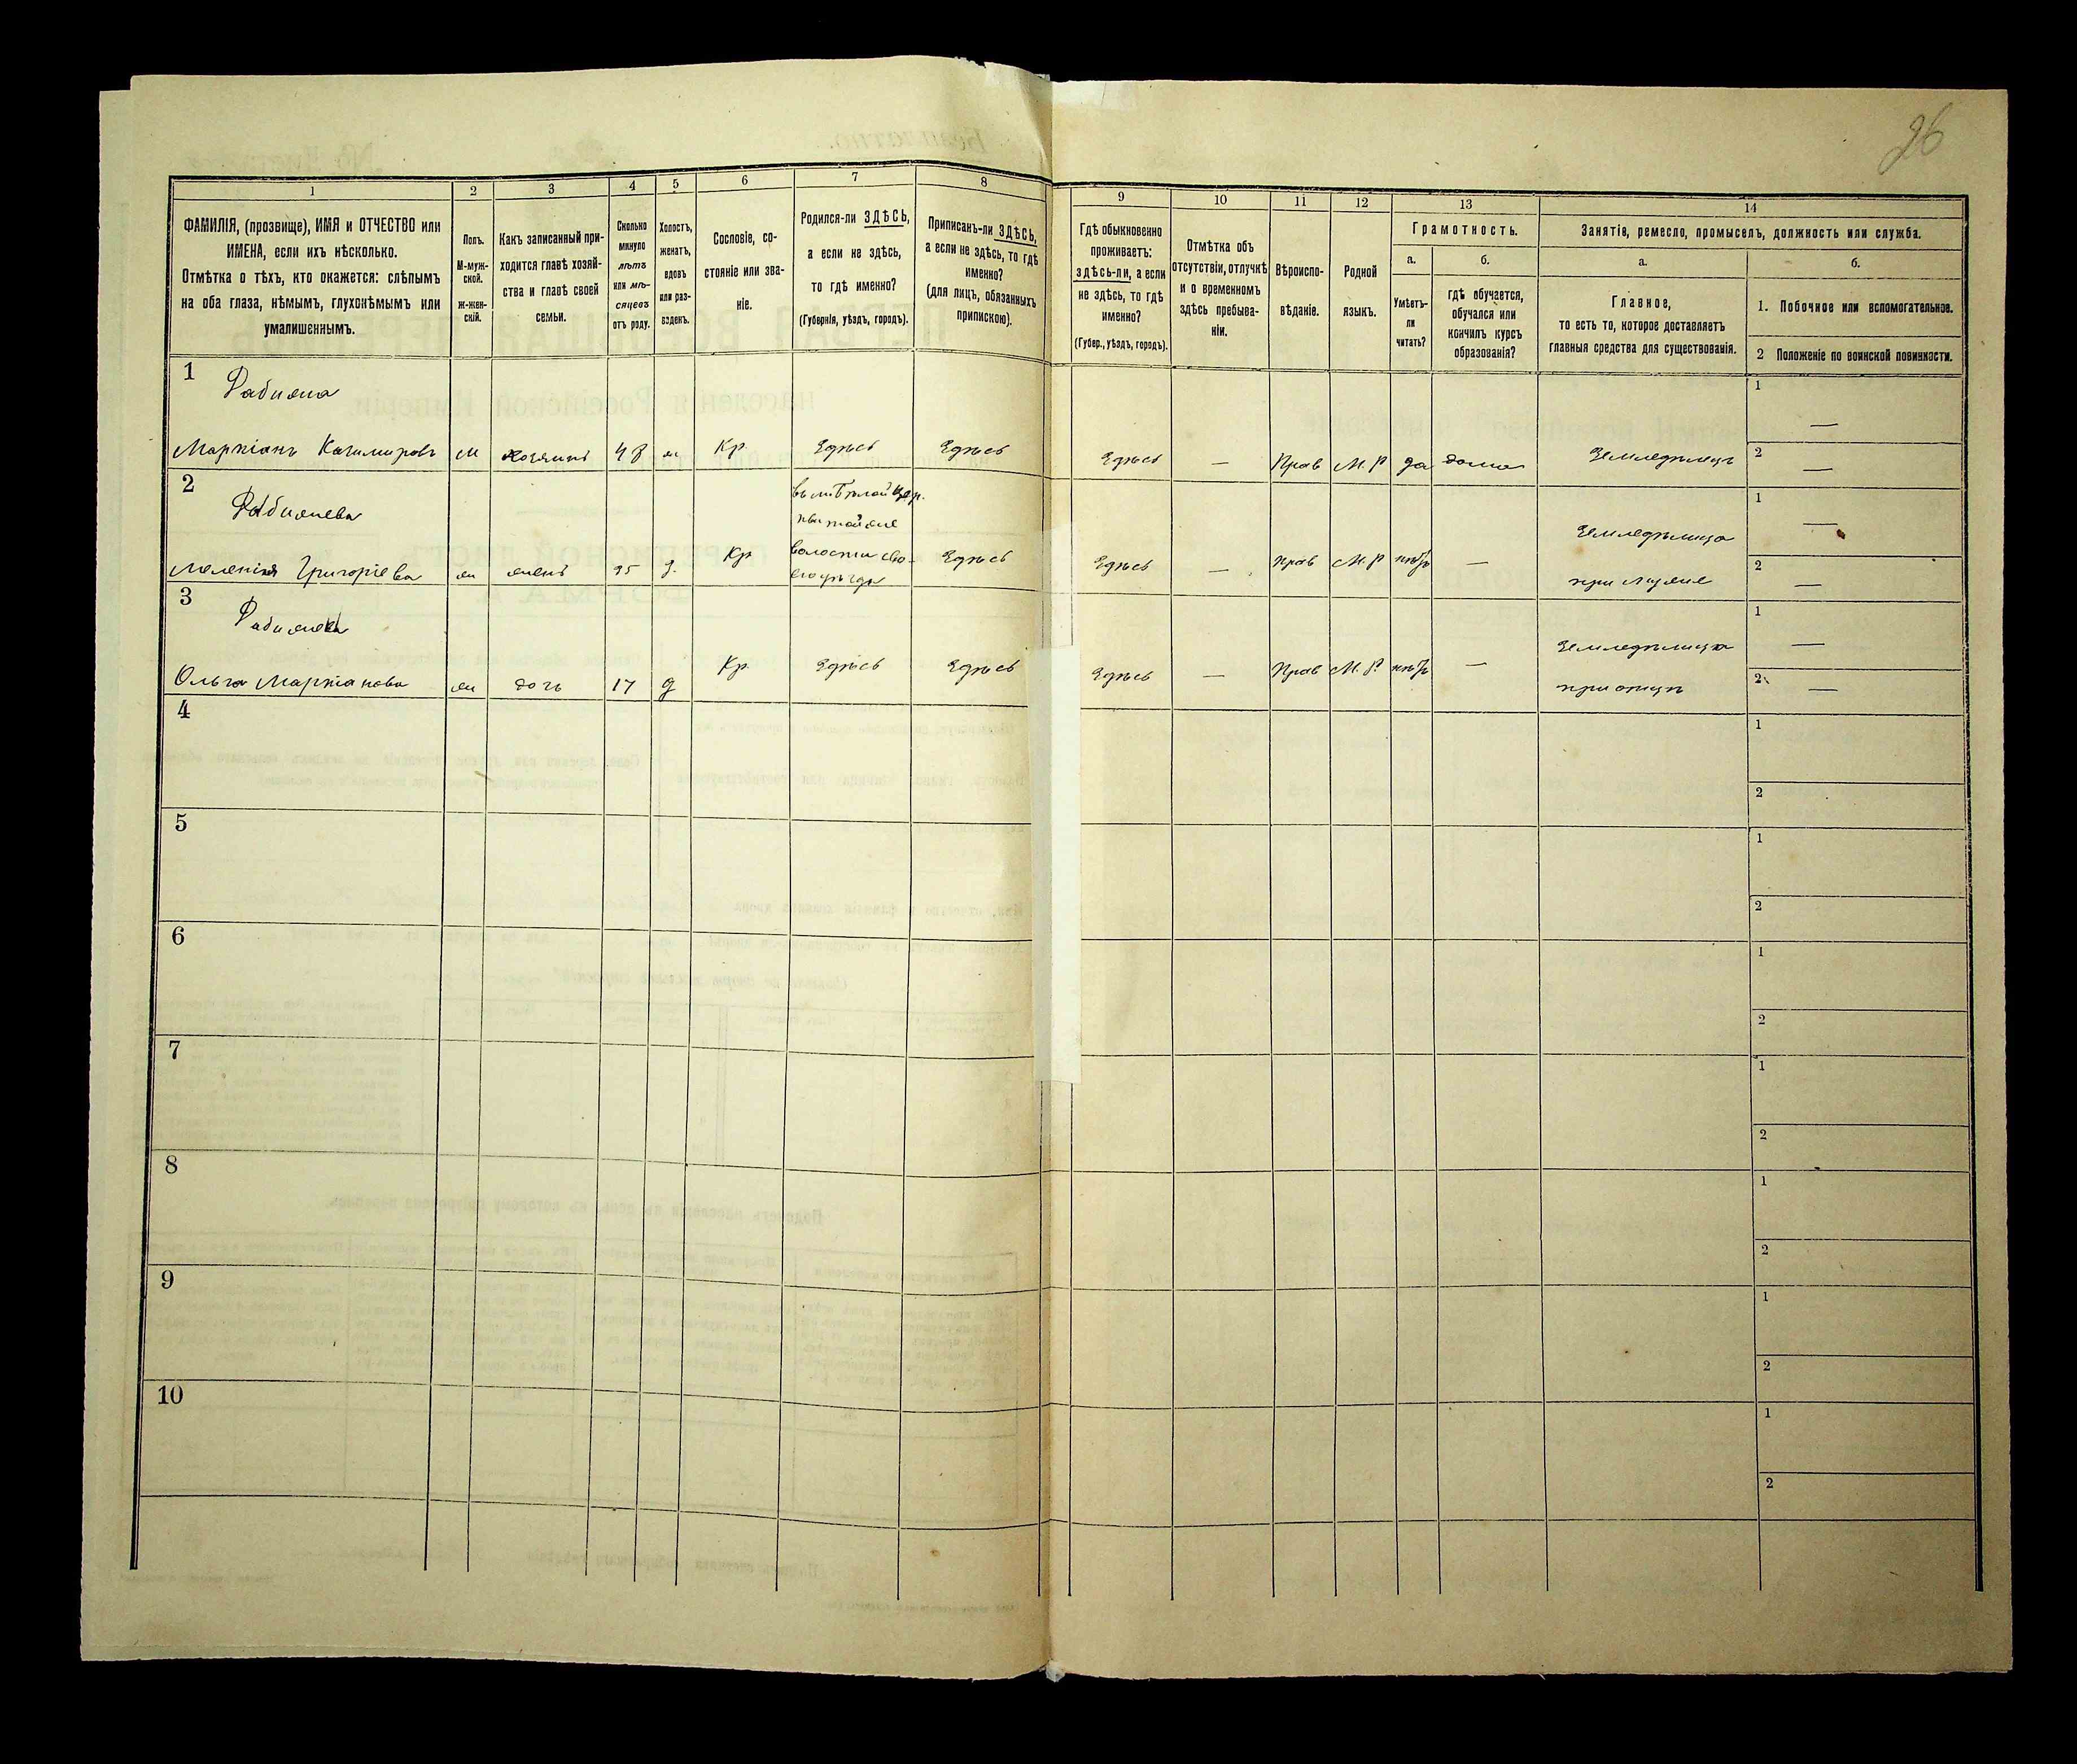 26
1 2 3 4 5 6 7 8 9 10 11 12 13 14
ФАМИЛІЯ, (прозвище), ИМЯ и ОТЧЕСТВО или
ИМЕНА, если ихъ нѣсколько.
Отмѣтка о тѣхъ, кто окажется: слѣпымъ
на оба глаза, нѣмымъ, глухонѣмымъ или
умалишеннымъ.
Полъ.
М-муж-
ской.
ж-жен-
скій.
Какъ записанный при-
ходится главѣ хозяй-
ства и главѣ своей
семьи.
Сколько
минуло
лѣтъ
или мѣ-
сяцевъ
отъ роду.
Холостъ,
женатъ,
вдовъ
или раз-
веденъ.
Сословіе, со-
стояніе или зва-
ніе.
Родился-ли ЗДѢСЬ,
а если не здѣсь,
то гдѣ именно?
(Губернія, уѣздъ, городъ).
Приписанъ-ли ЗДѢСЬ,
а если не здѣсь, то гдѣ
именно?
(для лицъ, обязанныхъ
припискою).
Гдѣ обыкновенно
проживаетъ:
здѣсь-ли, а если
не здѣсь, то гдѣ
именно?
(Губер., уѣздъ, городъ).
Отмѣтка объ
отсутствіи, отлучкѣ
и о временномъ
здѣсь пребыва-
ніи.
Вѣроиспо-
вѣданіе.
Родной
языкъ.
Грамотность.
а.
Умѣетъ-
ли
читать?
б.
гдѣ обучается,
обучался или
кончилъ курсъ
образованія?
Занятія, ремесло, промыселъ, должность или служба.
а.
Главное,
то есть то, которое доставляетъ
главныя средства для существованія.
б.
1. Побочное или вспомогательное.
2 Положеніе по воинской повинности.
1
Фабияна
1 —
Маркіанъ Казимировъ м хозяинъ 48 ж Кр Здѣсь Здѣсь Здѣсь — Прав М.Р да дома Земледѣлецъ 2 —
2
Фабиянева
Земледѣлица
1 —
волости
Меленія Григоріева ж жена д. Кр Здѣсь Здѣсь — Прав М.Р нѣтъ — при мужѣ 2 —
3
Фабиянева
Земледѣлица
1 —
Ольга Маркіанова ж дочь 17 д Кр Здѣсь Здѣсь Здѣсь — Прав М.Р. нѣтъ — при отцѣ 2 —
4 1
2
5 1
2
6 1
2
7 1
2
8 1
2
9 1
2
10 1
2